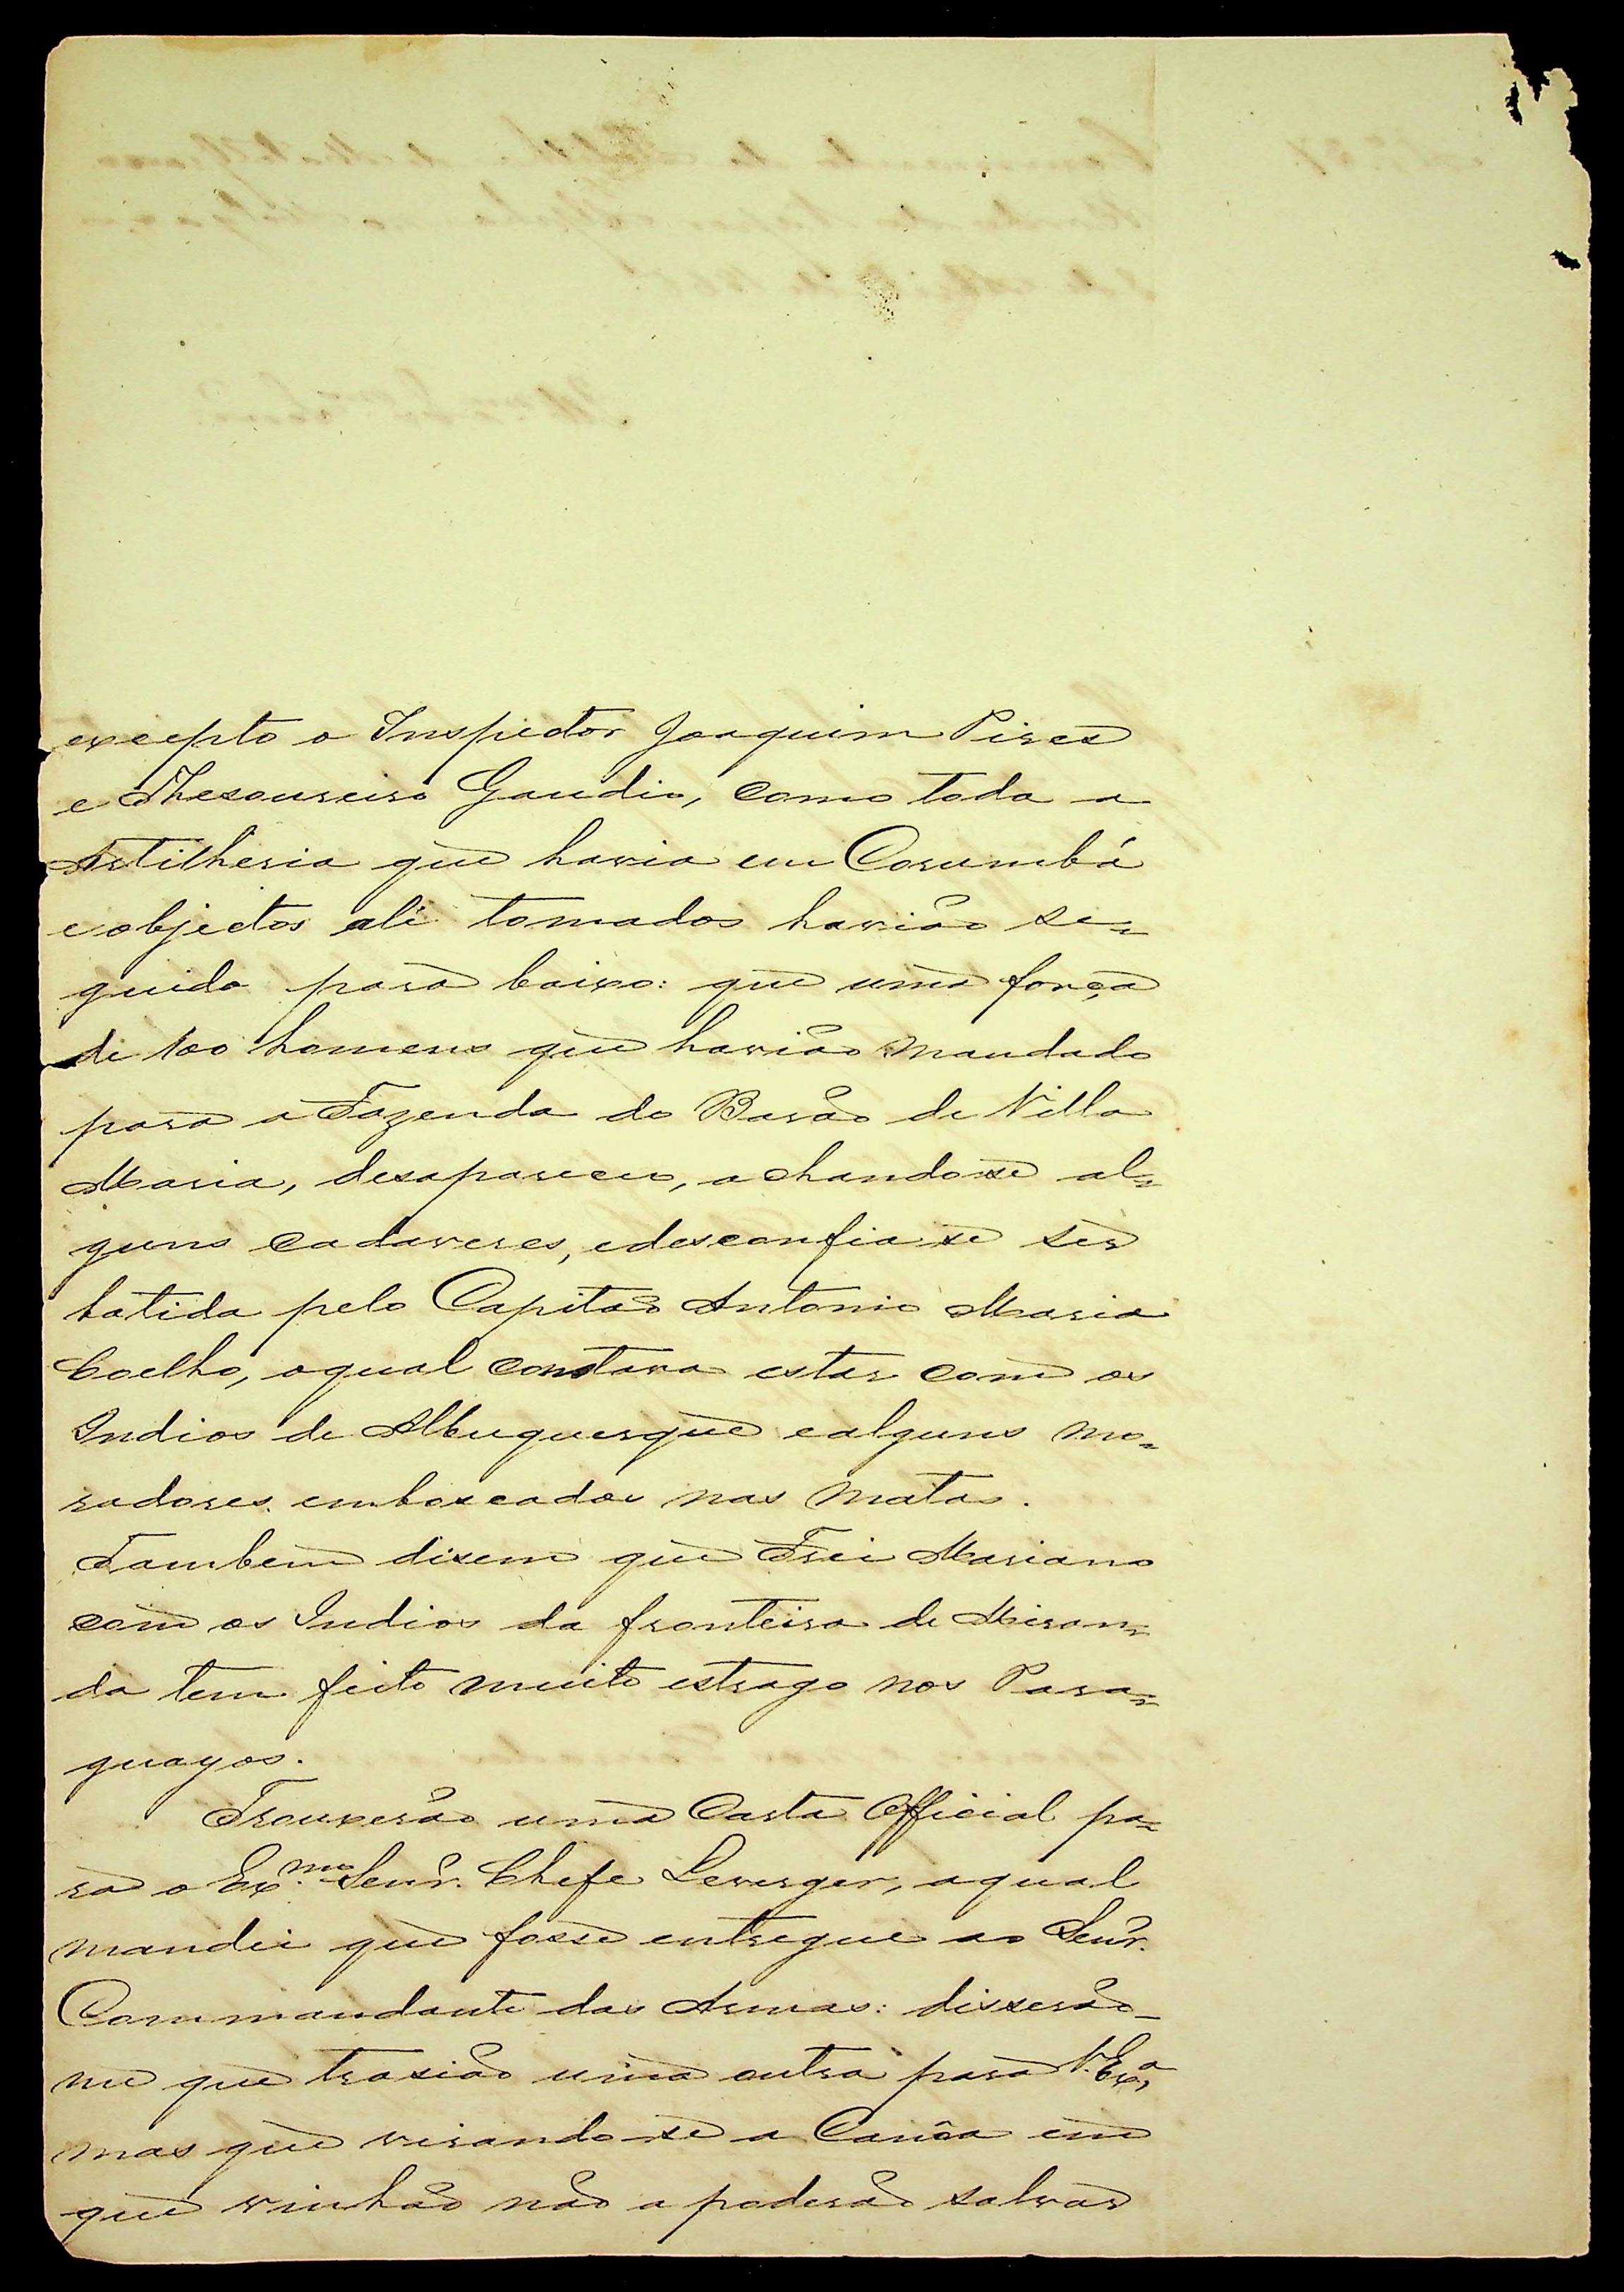 excepto o Inspector Joaquim Pires
e Thesoureiro Gaudio, como toda a
Artilheria que havia em Corumbá
e objectos ali tomados havião se=
guido para baixo: que uma força
de 100 homens que havião mandado
para a Fazenda do Barão de Villa
Maria, desapareceu, achando-se al=
guns cadaveres, e desconfia-se ser
batida pelo Capitão Antonio Maria
Coelho, o qual constava estar com os
Indios de Albuquerque e alguns mo=
radores emboscados nas matas.
Tambem dizem que Frei Mariano
com os Indios da fronteira de Miran=
da tem feito muito estrago nos Para=
guayos.
Trouxerão uma Carta Official pa=
ra o Ex.mo Senr. Chefe Leverger, a qual
mandei que fosse entregue ao Senr.
Commandante das Armas: disserão-
me que trazião uma outra para V. Ex.a,
mas que virando-se a Canôa em
que vinhão não a poderão salvar